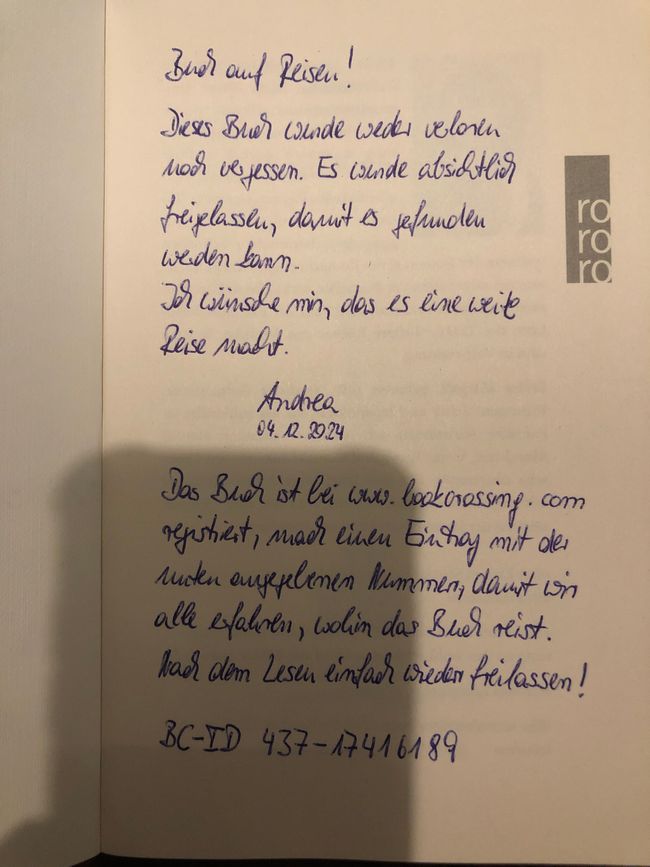 Buch auf Reisen!
Dieses Buch wurde weder verloren
noch vergessen. Es wurde absichtlich
freigelassen, damit es gefunden
werden kann.
Ich wünsche mir, das es eine weite
Reise macht.
Andrea
04.12.2024
Das Buch ist bei www.bookcrossing.com
registriert, mach einen Eintrag mit der
unten angegebenen Nummer, damit wir
alle erfahren, wohin das Buch reist.
Nach dem Lesen einfach wieder freilassen!
BC-ID 437-17416189
ro
ro
ro